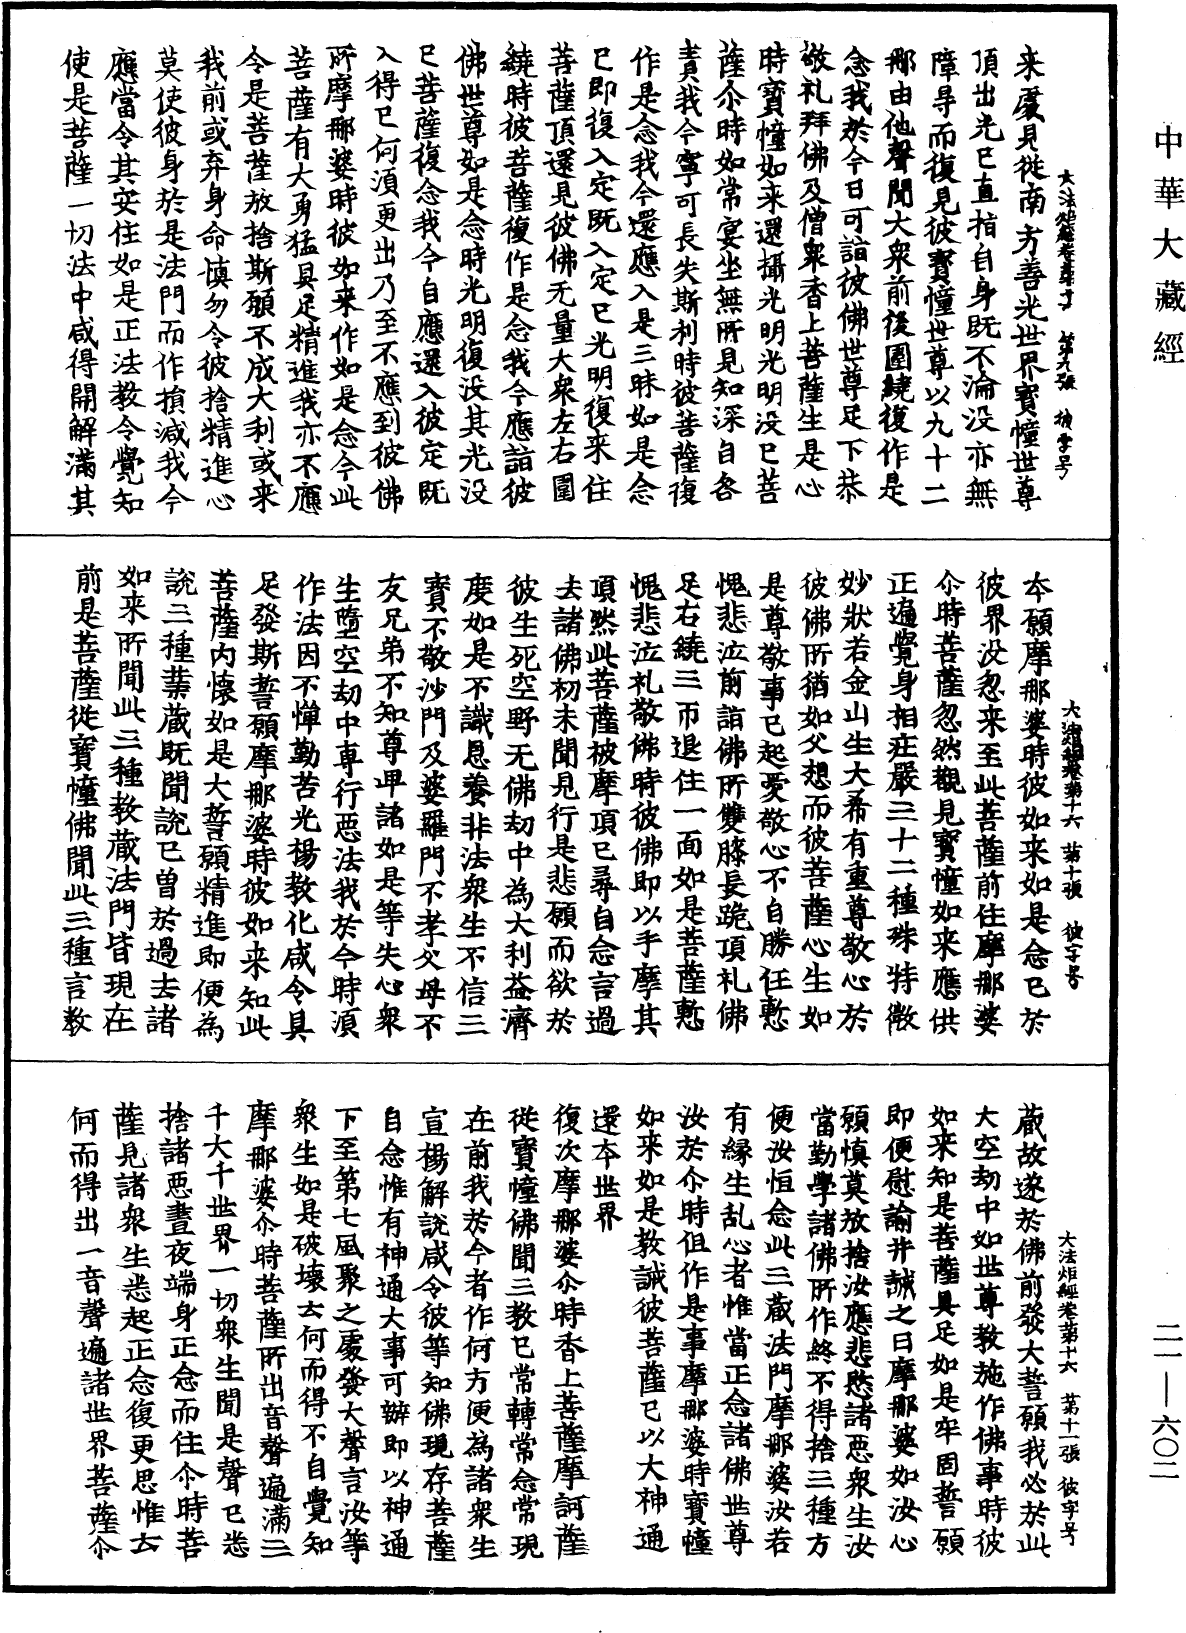 中華大藏經
二一—六〇二
大法炬經卷第十六 第九張 彼字号
来處見従南方善光世界寶幢世尊
頂出光已直指自身既不淪没亦無
障㝵而復見彼寶幢世尊以九十二
那由他聲聞大衆前後圍繞復作是
念我於今日可詣彼佛世尊足下恭
敬礼拜佛及僧衆香上菩薩生是心
時寶幢如来還攝光明光明没已菩
薩尒時如常宴坐無所見知深自各
責我今寧可長失斯利時彼菩薩復
作是念我今還應入是三昧如是念
已即復入定既入定已光明復来住
菩薩頂還見彼佛无量大衆左右圍
繞時彼菩薩復作是念我今應詣彼
佛世尊如是念時光明復没其光没
已菩薩復念我今自應還入彼定既
入得已何須更出乃至不應到彼佛
所摩那婆時彼如来作如是念今此
菩薩有大勇猛具足精進我亦不應
令是菩薩放捨斯願不成大利或来
我前或弃身命慎勿令彼捨精進心
莫使彼身於是法門而作損減我今
應當令其安住如是正法教令覺知
使是菩薩一切法中咸得開解滿其
大法炬經卷第十六 第十張 彼字号
夲願摩那婆時彼如来如是念已於
彼界没忽来至此菩薩前住摩那婆
尒時菩薩忽然覩見寶幢如来應供
正遍覺身相庄嚴三十二種殊特微
妙狀若金山生大希有重尊敬心於
彼佛所猶如父想而彼菩薩心生如
是尊敬事已起愛敬心不自勝任慙
愧悲泣前詣佛所雙膝長跪頂礼佛
足右繞三帀退住一面如是菩薩慙
愧悲泣礼敬佛時彼佛即以手摩其
頂然此菩薩被摩頂已尋自念言過
去諸佛初未聞見行是悲願而欲於
彼生死空野无佛劫中為大利益濟
度如是不識恩養非法衆生不信三
寶不敬沙門及婆羅門不孝父母不
友兄弟不知尊卑諸如是等失心衆
生墮空劫中専行惡法我於今時須
作法因不憚勤苦光揚教化咸令具
足發斯誓願摩那婆時彼如来知此
菩薩内懷如是大誓願精進即便為
說三種葉蔵既聞說已曽於過去諸
如来所聞此三種教蔵法門皆現在
前是菩薩従寶幢佛聞此三種言教
大法炬經卷第十六 第十一張 彼字号
蔵故遂於佛前發大誓願我必於此
大空劫中如世尊教施作佛事時彼
如来知是菩薩具足如是牢固誓願
即便慰諭并誡之曰摩那婆如汝心
願慎莫放捨汝應悲愍諸惡衆生汝
當勤學諸佛所作終不得捨三種方
便汝恒念此三蔵法門摩那婆汝若
有縁生乱心者惟當正念諸佛世尊
汝於尒時但作是事摩那婆時寶幢
如来如是教誡彼菩薩已以大神通
還夲世界
復次摩那婆尒時香上菩薩摩訶薩
従寶幢佛聞三教已常轉常念常現
在前我於今者作何方便為諸衆生
宣揚解說咸令彼等知佛現存菩薩
自念惟有神通大事可辦即以神通
下至第七風聚之處發大聲言汝等
衆生如是破壞云何而得不自覺知
摩那婆尒時菩薩所出音聲遍滿三
千大千世界一切衆生聞是聲已悉
捨諸惡晝夜端身正念而住尒時菩
薩見諸衆生悉起正念復更思惟云
何而得出一音聲遍諸世界菩薩尒